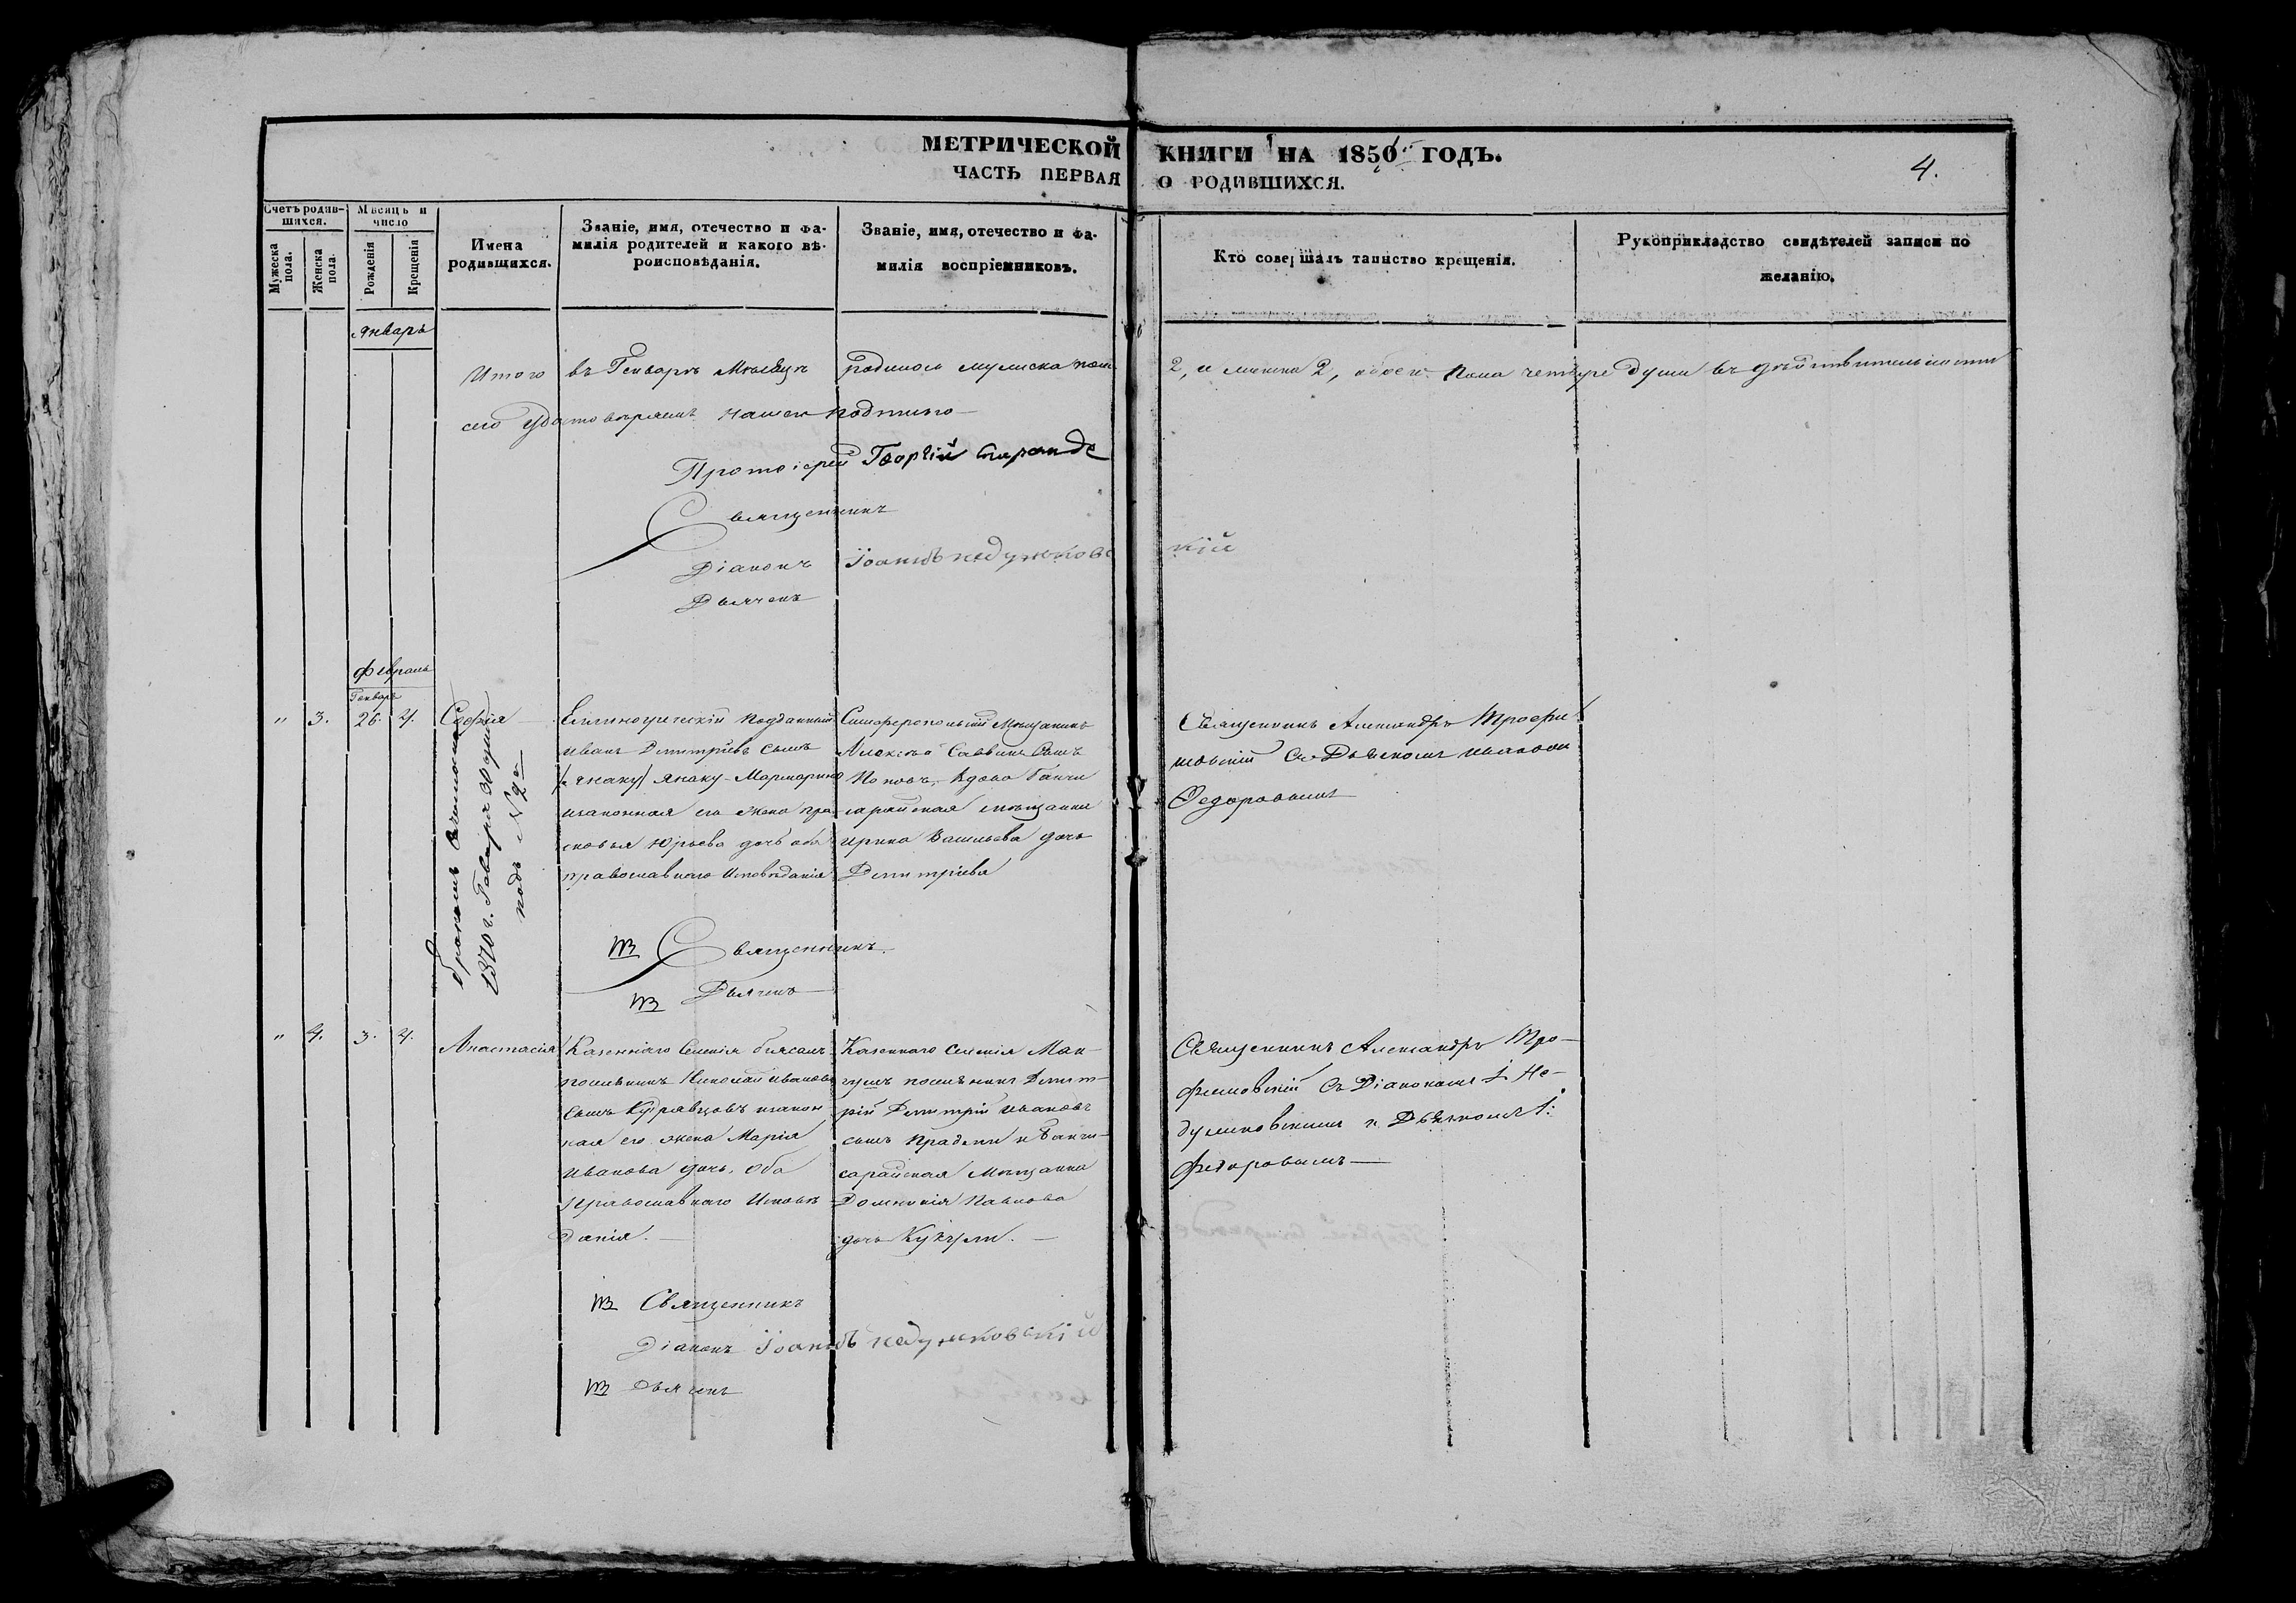 МЕТРИЧЕСКОЙ КНИГИ НА 1851 ГОДЪ.
ЧАСТЬ ПЕРВАЯ О РОДИВШИХСЯ.
4.
Счетъ родив-
шихся.
Мужеска
пола.
Женска
пола.
Мѣсяцъ и
число
Рожденія
Крещенія
Имена
родившихся.
Званіе, имя, отечество и фа-
милія родителей и какого вѣ-
роисповѣданія.
Званіе, имя, отечество и фа-
милія воспріемниковъ.
Кто совершалъ таинство крещенія.
Рукоприкладство свидѣтелей записи по
желанію.
Январь
Итого въ Генварѣ Мѣсяцѣ родилось мужеска пола 2, и женска 2, обоего пола четыре души въ дѣйствительности
сего удостовѣряемъ нашею подписью
Протоіерей Георгій Спиранде
Священникъ
Діаконъ Іоаннъ Недумковскій
Дьячекъ
Февраль
Генварь
" 3. 26. 4. Софія
бракомъ
1870 г. Января 30 дня
подъ № 2м
подданный
Иванъ Димитріевъ сынъ
Янаку Янаку-Мармарино
изаконная его жена Пра-
сковья Юрьева дочь оба
православнаго Исповѣданія
Симферопольскій Мѣщанинъ
Алексѣй Саввинъ Сынъ
Поповъ, Вдова Бахчи
сарайская мѣщанка
Ирина Васильева дочь
Димитріева
Священникъ Александръ Трофи
мовскій съ Дьячкомъ Иваномъ
Федоровымъ
Священникъ
Дьячекъ
" 4. 3. 4. Анастасія
Казеннаго Селенія Біясалъ
поселянинъ Николай Ивановъ
Сынъ Кудрявцовъ изакон
ная его жена Марія
Иванова дочь. Оба
Православнаго Исповѣ
данія.
Казеннаго Селенія Ман-
гушъ поселянинъ Димит-
рій Димитрій Ивановъ
сынъ и Бахчи-
сарайская Мѣщанка
Домникія Павлова
дочь
Священникъ Александръ Тро-
фимовскій съ Діакономъ І. Не-
думковскимъ и Дьячкомъ І:
Федоровымъ
Священникъ
Діаконъ Іоаннъ Недумковскій
Дьячекъ